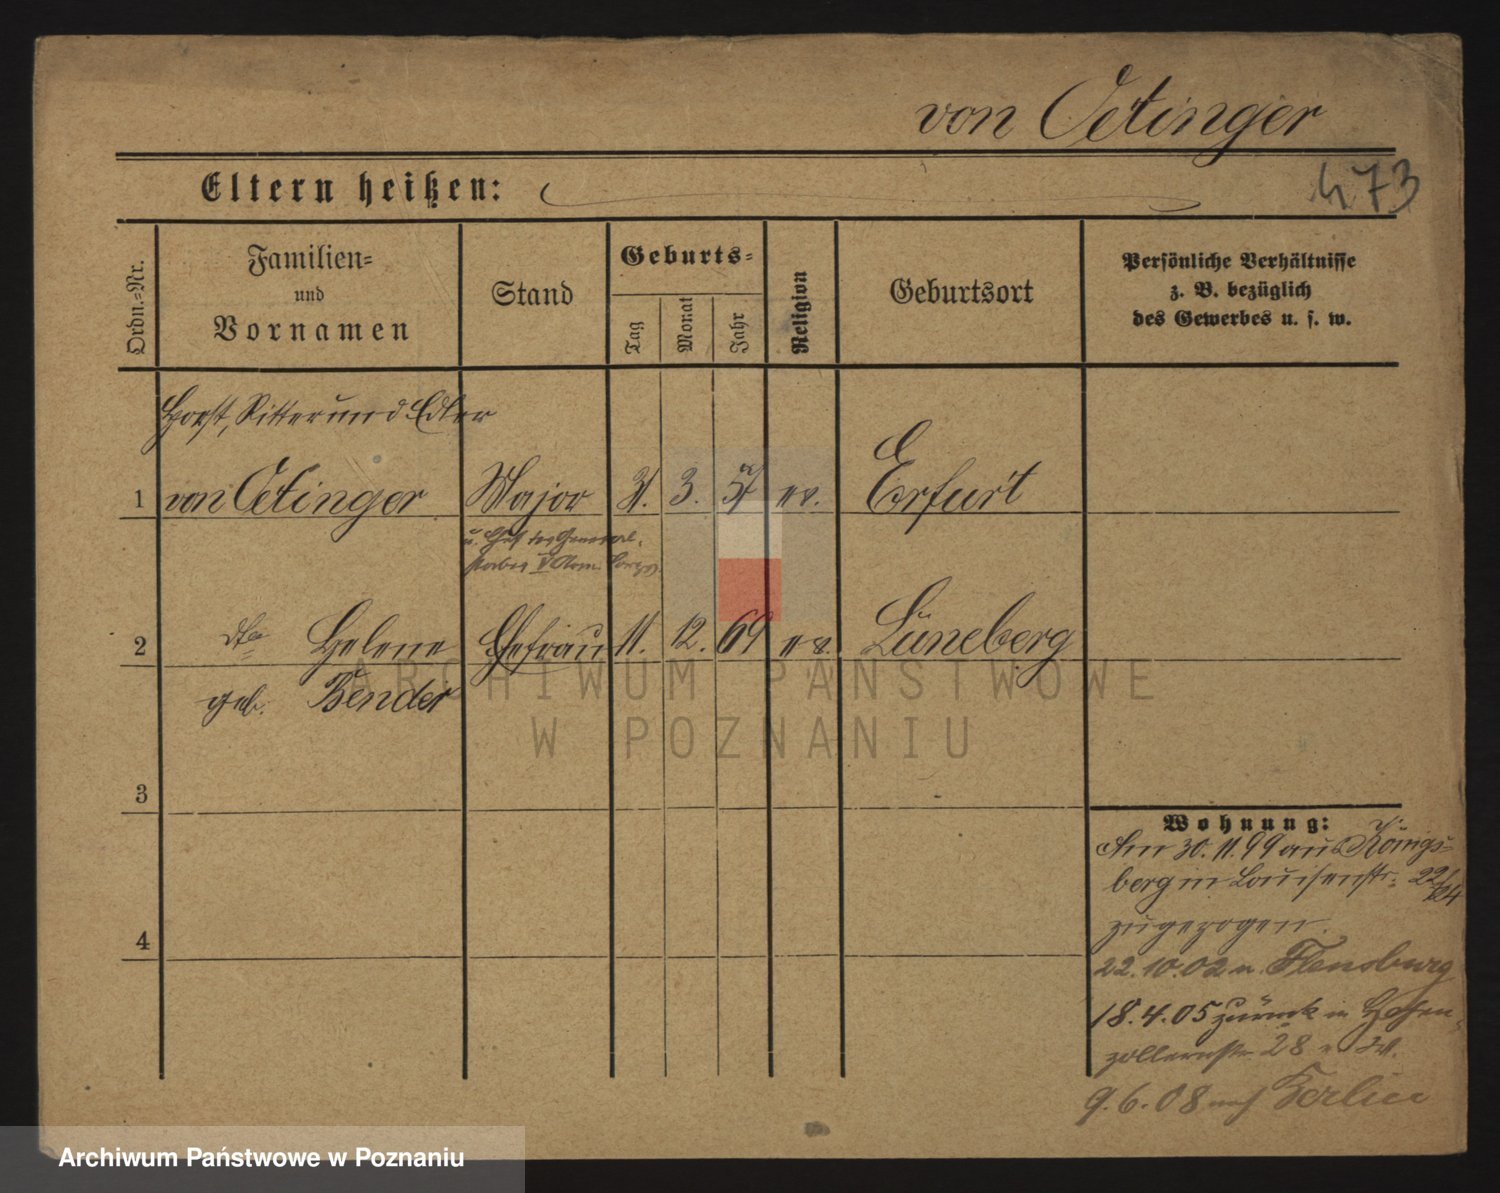 von Oetinger
Eltern heißen:
473
Ordn.=Nr.
Familien=
und
Vornamen
Stand
Geburts=
Tag
Monat
Jahr
Religion
Geburtsort
Persönliche Verhältnisse
z. B. bezüglich
des Gewerbes u. s. w.
Horst, Ritter und Edler
1 von Oetinger Major 3. ev. Erfurt
u. Chef des General-
stabes V Arm. Corps.
2 dto Helene Ehefrau 11. 12. 69 ev. Lüneberg
geb. Bender
3
4
Wohnung:
Am 30.11.99 aus Königs=
berg in 22/24
zugezogen.
22.10.02 n. Flensburg
18.4.05 zurück in Hohen=
zollernstr. 28
9.6.08 nach Berlin
ARCHIWUM PAŃSTWOWE
W POZNANIU
Archiwum Państwowe w Poznaniu